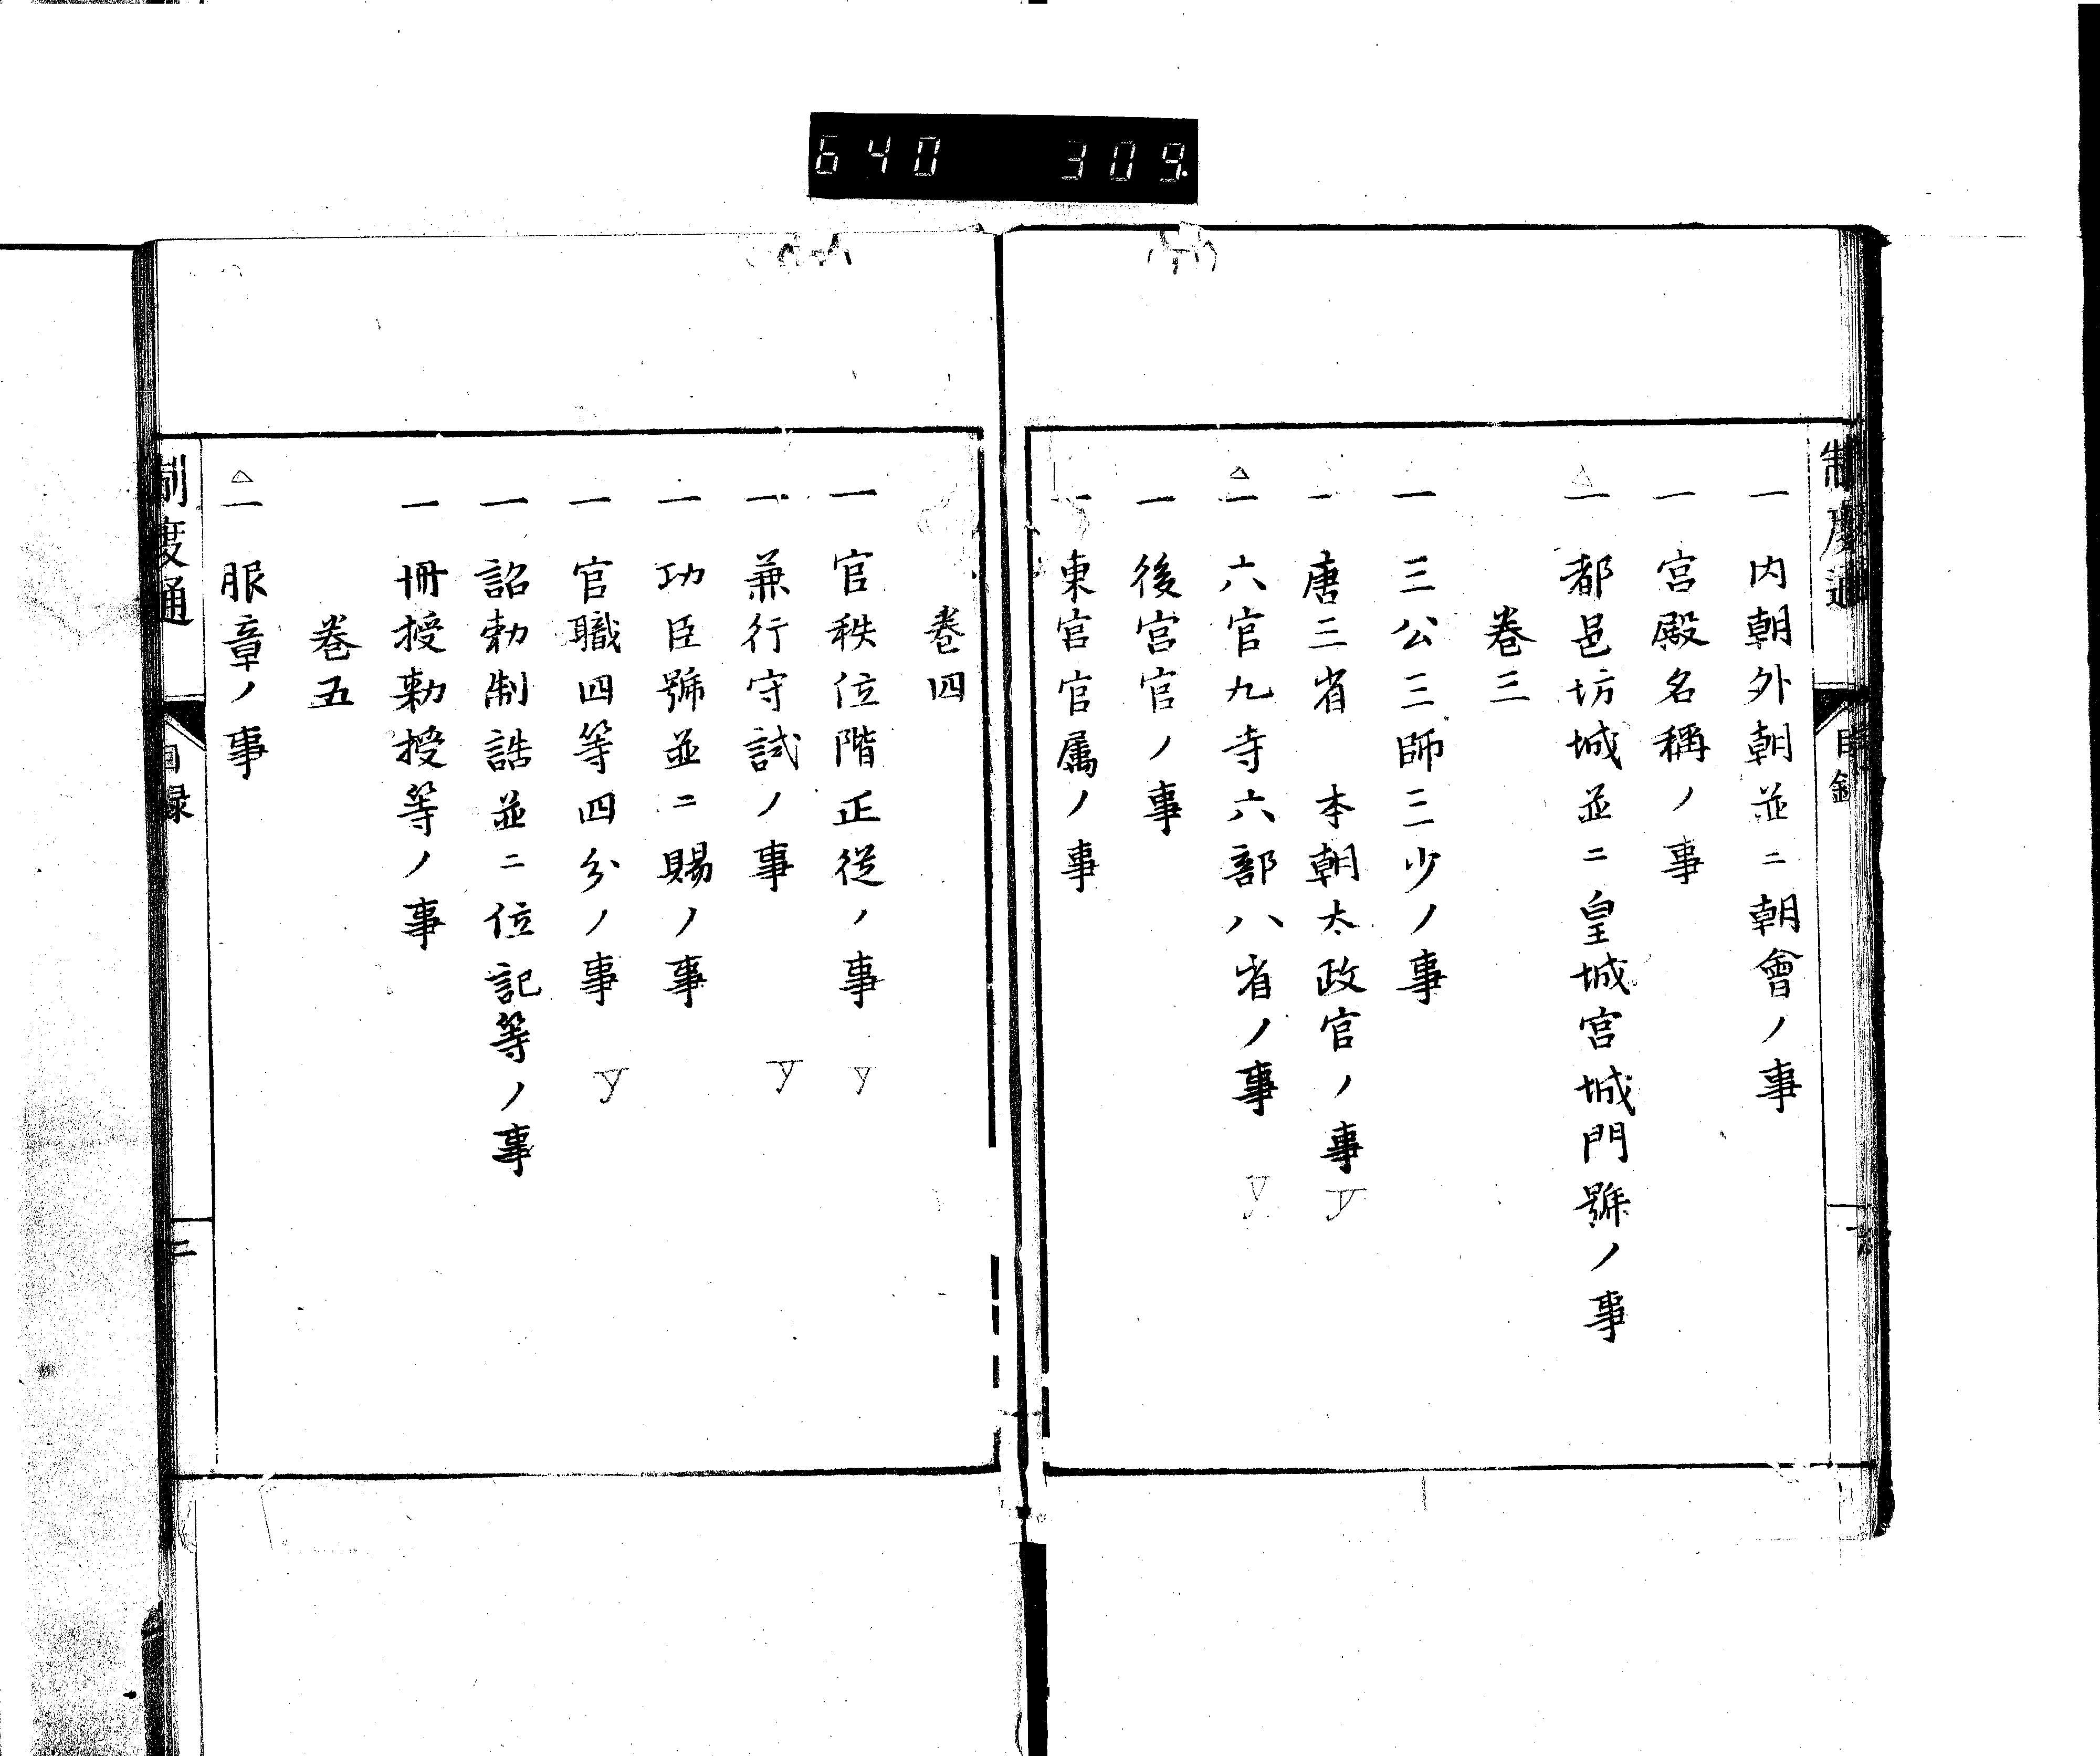 640 309
制度通 目録
一 内朝外朝並ニ朝會ノ事
一 宮殿名稱ノ事
△一 都邑坊城並ニ皇城宮城門號ノ事
巻三
一 三公三師三少ノ事
一 唐三省 本朝太政官ノ事
△一 六官九寺六部八省ノ事
一 後宮官ノ事
一 東宮官属ノ事
巻四
一 官秩位階正従ノ事
一 兼行守試ノ事
一 功臣號並ニ賜ノ事
一 官職四等四分ノ事
一 詔勅制誥並ニ位記等ノ事
一 冊授勅授等ノ事
巻五
△一 服章ノ事
制度通 目録 二